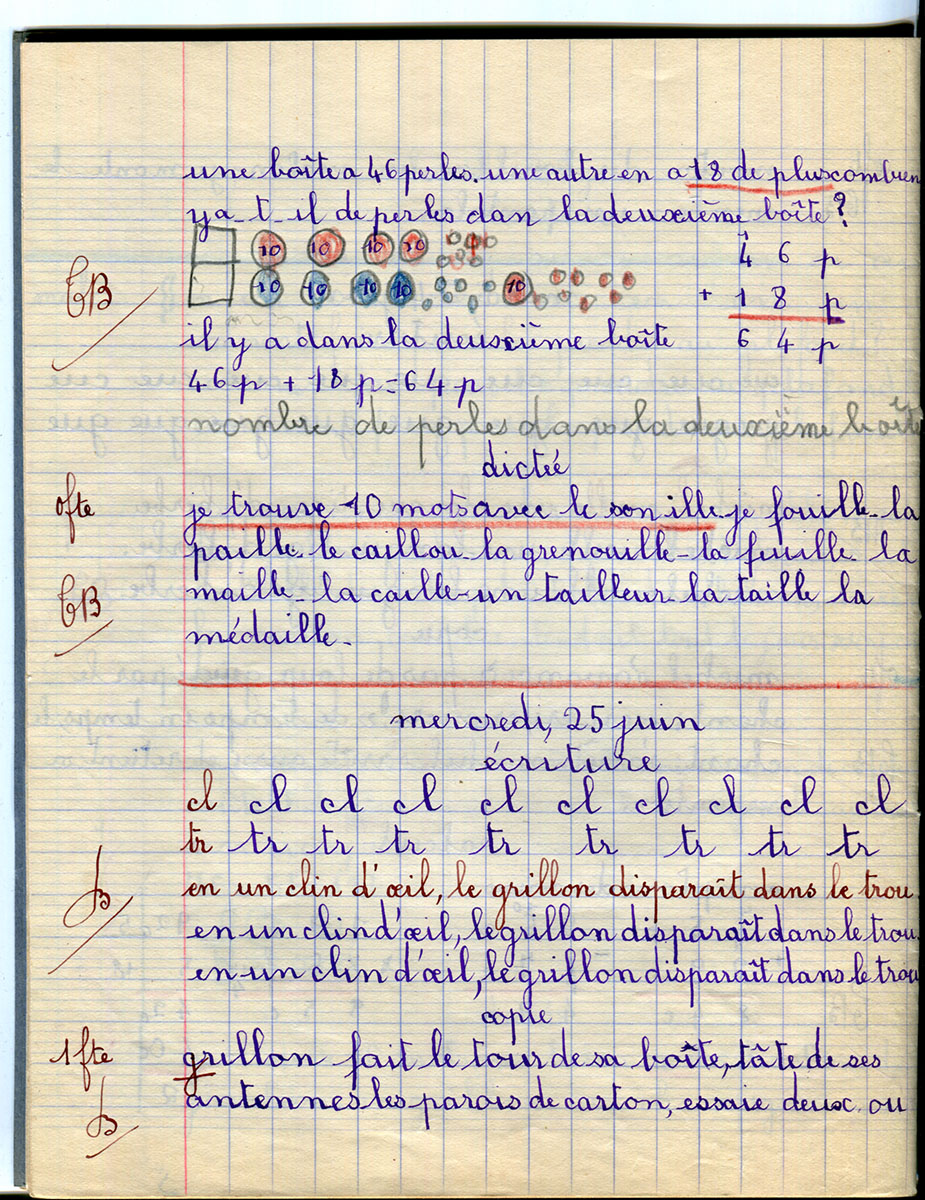 une boîte a 46 perles. une autre en a 18 de plus combien
y a_t_il de perles dan la deuxième boîte?
10 10 10 10
1
4 6 p
TB
10 10 10 10 10
+ 1 8 p
il y a dans la deuxième boîte
6 4 p
46 p + 18 p = 64 p
nombre de perles dans la deuxième boîte
dictée
0fte
je trouve 10 mots avec le son ille je fouille_la
paille_le caillou_la grenouille_la feuille_la
TB
maille_la caille_un tailleur_la taille la
médaille_
mercredi, 25 juin
écriture
cl cl cl cl cl cl cl cl cl cl
tr tr tr tr tr tr tr tr tr
B
en un clin d'œil, le grillon disparaît dans le trou.
en un clin d'œil, le grillon disparaît dans le trou.
en un clin d'œil, le grillon disparaît dans le trou
copie
1 fte
grillon fait le tour de sa boîte, tâte de ses
B
antennes les parois de carton, essaie deux ou